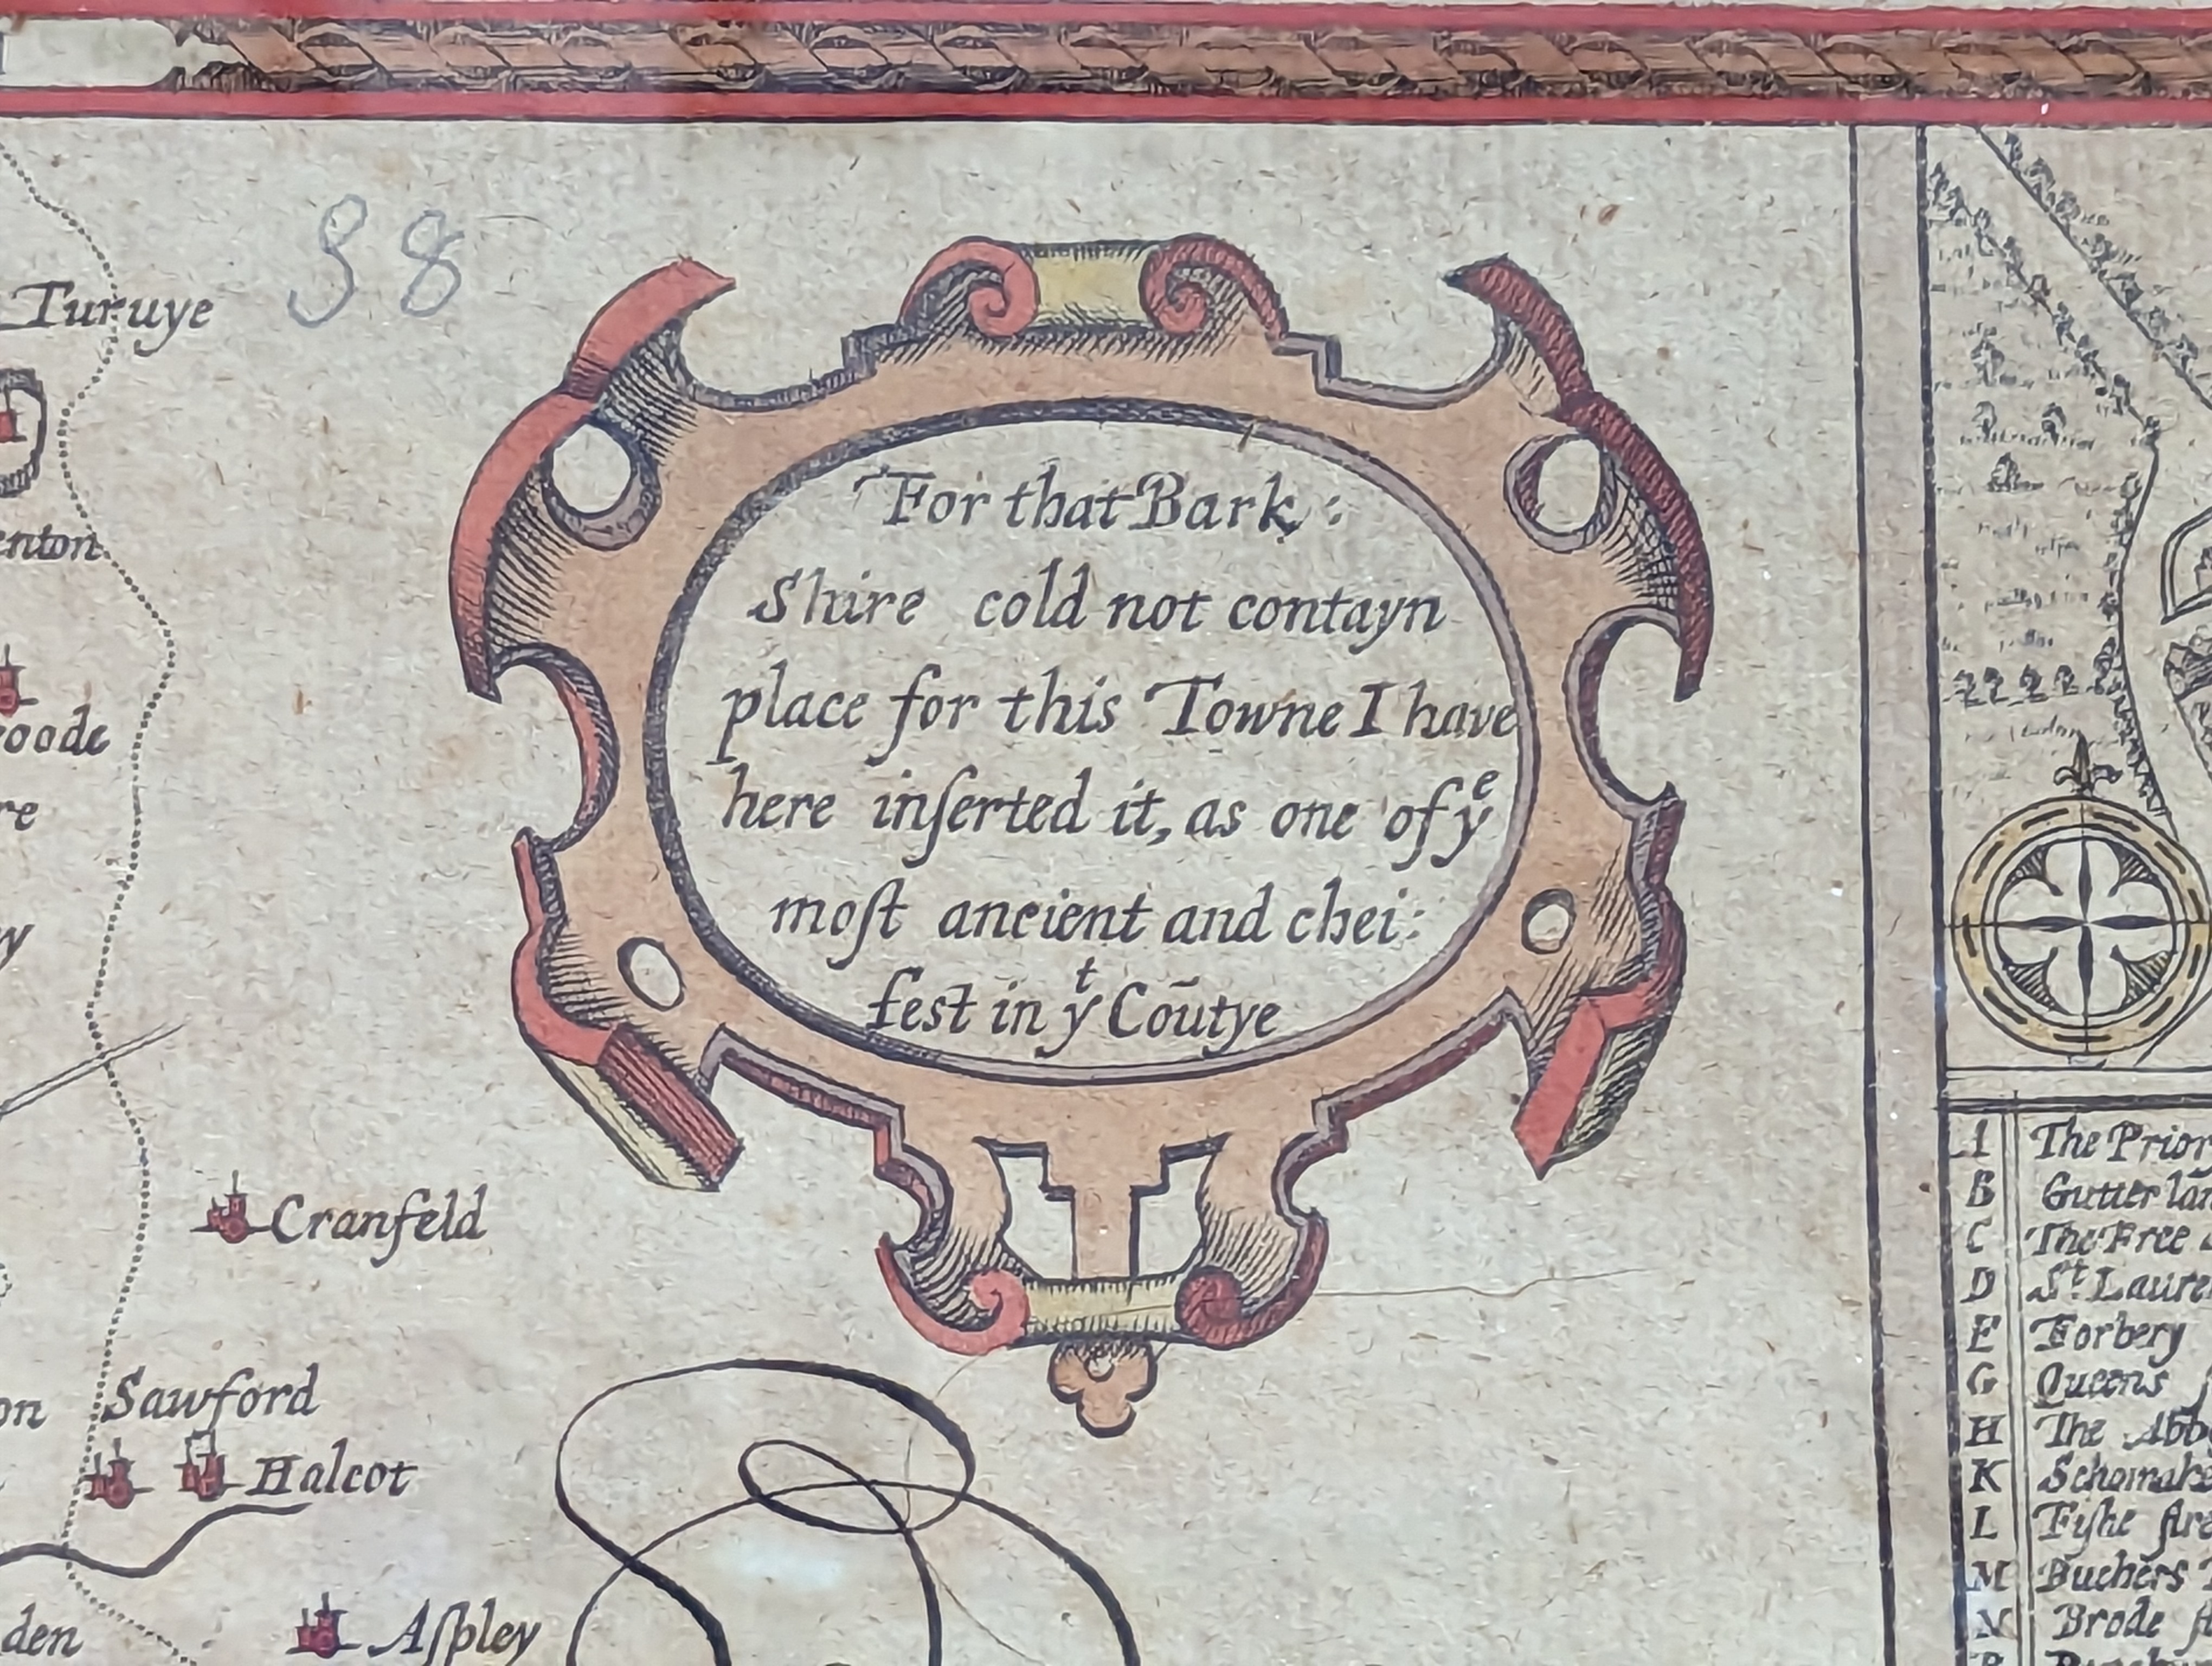 Turuye
38
enton
oode
re
For that Bark :
Shire cold not contayn
place for this Towne I have
here inſerted it, as one of yͤ
moſt ancient and chei:
fest in yͭ Coūtye
Cranfeld
Sawford
on
Halcot
den
Aſpley
The Prior
B Gutter
C The Free
D Sᵗ
E Forbery
G Queens
H The
K
L Fiſhe
M Buchers
N Brode